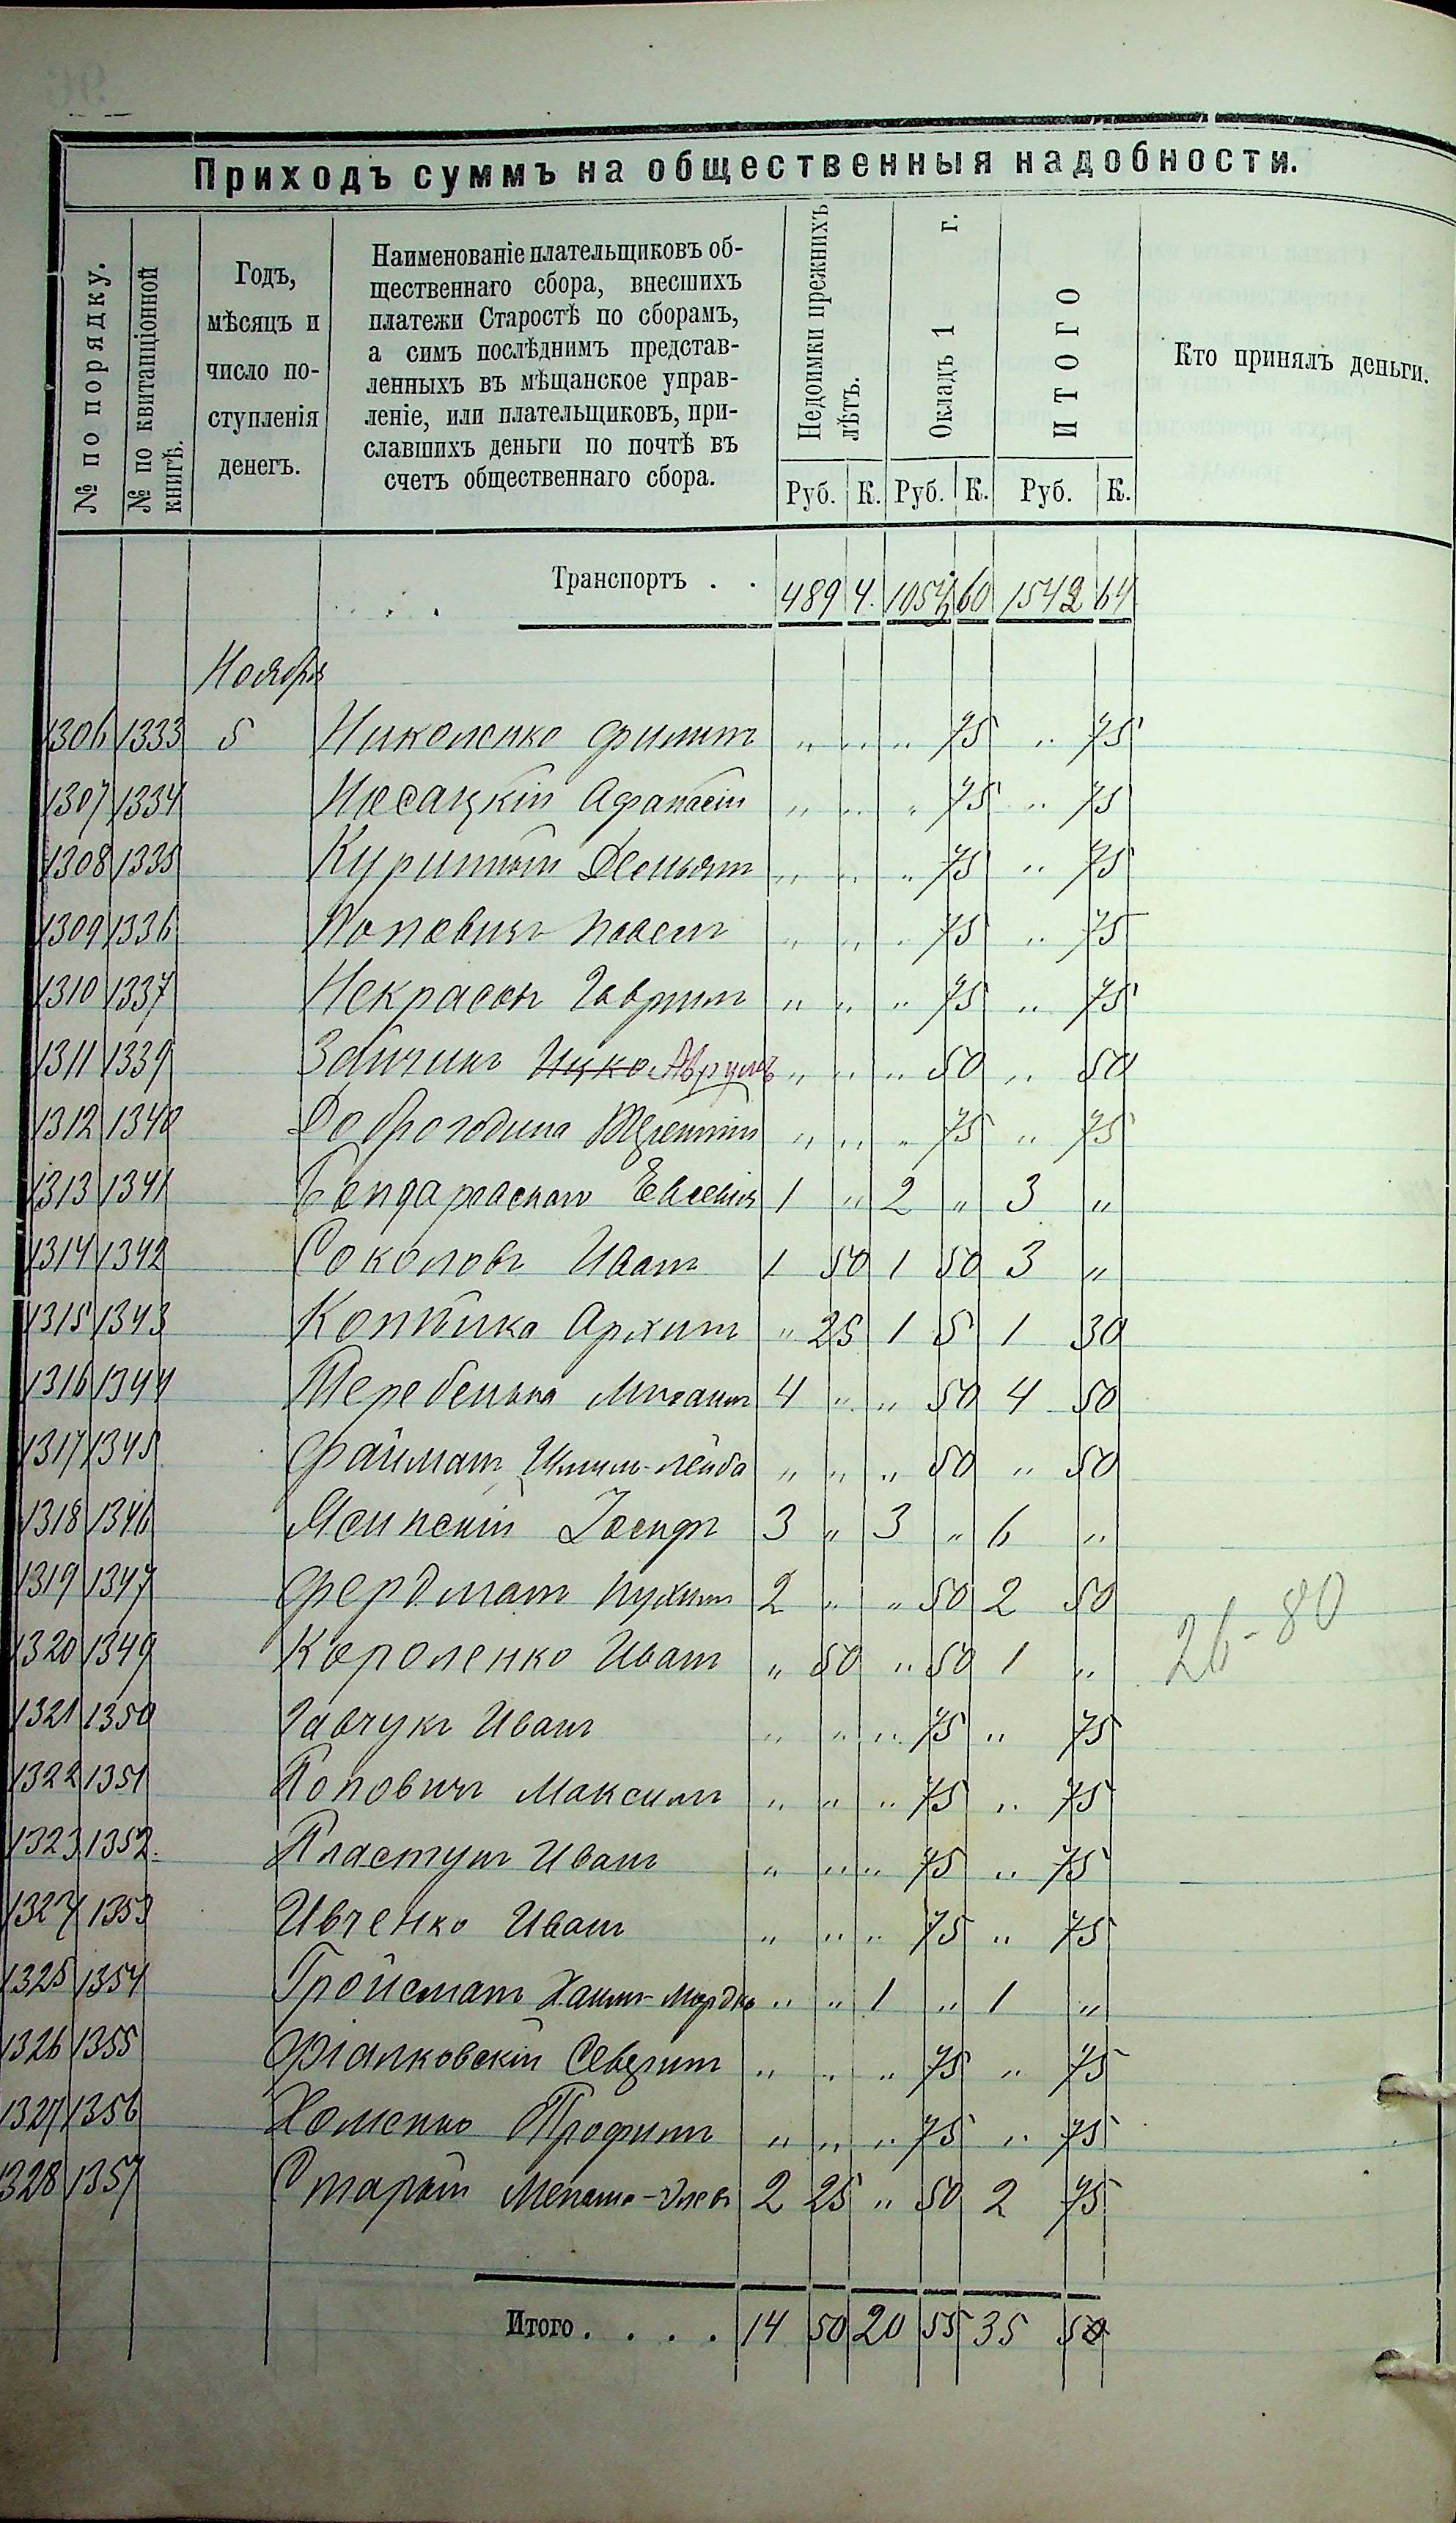 Приходъ суммъ на общественныя надобности.
№ по порядку.
№ по квитанціонной книгѣ.
Годъ,
мѣсяцъ и
число по-
ступленія
денегъ.
Наименованіе плательщиковъ об-
щественнаго сбора, внесшихъ
платежи Старостѣ по сборамъ,
а симъ послѣднимъ представ-
ленныхъ въ мѣщанское управ-
леніе, или плательщиковъ, при-
славшихъ деньги по почтѣ въ
счетъ общественнаго сбора.
Недоимки прежнихъ лѣтъ.
Окладъ 1 г.
ИТОГО
Кто принялъ деньги.
Руб. К. Руб. К. Руб. К.
Транспортъ . . 489 4. 1054 60 1542 64
Ноября
1306 1333 5 Николенко Филипъ " " " 75 " 75
1307 1334 Афанасій " " " 75 " 75
1308 1335 Демьянъ " " " 75 " 75
1309 1336 Поповичъ Павелъ " " " 75 " 75
1310 1337 Некрасовъ Гаврилъ " " " 75 " 75
1311 1339 Зайчикъ Ицко Аврумъ " " " 50 " 50
1312 1340 Доброгодина " " " 75 " 75
1313 1341 Евсевія 1 " 2 " 3 "
1314 1342 Соколовъ Иванъ 1 50 1 50 3 "
1315 1343 Копѣйко Архипъ " 25 1 5 1 30
1316 1344 Теребенько Михаилъ 4 " " 50 4 50
1317 1345 Файманъ Шмиль-Лейба " " " 50 " 50
1318 1346 Ясинскій Іосифъ 3 " 3 " 6 "
1319 1347 Фердманъ Нухимъ 2 " " 50 2 50
1320 1349 Короленко Иванъ " 50 " 50 1 "
26-80
1321 1350 Гавчукъ Иванъ " " " 75 " 75
1322 1351 Поповичъ Максимъ " " " 75 " 75
1323 1352. Пластунъ Иванъ " " " 75 " 75
1324 1353 Ивченко Иванъ " " " 75 " 75
1325 1354 Гройсманъ Хаимъ-Мордко " " 1 " 1 "
1326 1355 Фіалковскій Северинъ " " " 75 " 75
1327 1356 Хоменко Трофимъ " " " 75 " 75
1328 1357 Старый 2 25 " 50 2 75
Итого . . . . 14 50 20 55 35 50